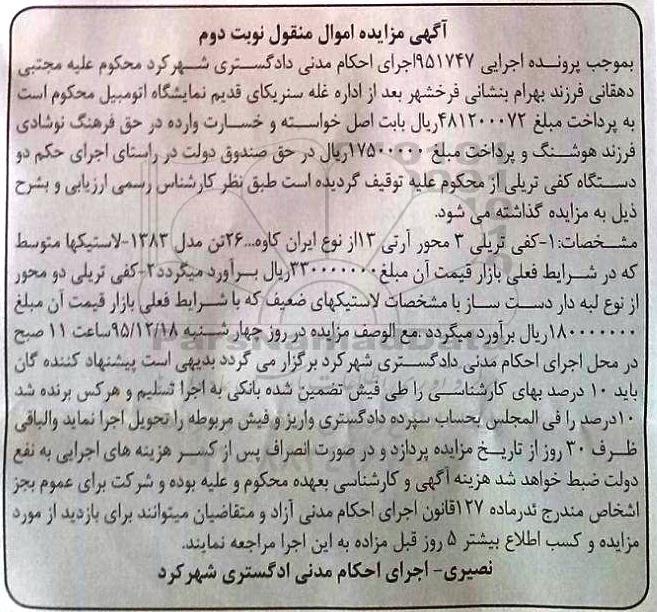 آگهی مزایده اموال منقول نوبت دوم
بموجب پرونده اجرایی ۹۵۱۷۴۷اجرای احکام مدنی دادگستری شهرکرد محکوم علیه مجتبی
دهقانی فرزند بهرام بنشانی فرخشهر بعد از اداره غله سنریکای قدیم نمایشگاه اتومبیل محکوم است
به پرداخت مبلغ ۴۸۱۲۰۰۰۷۲ریال بابت اصل خواسته و خسارت وارده در حق فرهنگ نوشادی
فرزند هوشنگ و پرداخت مبلغ ۱۷۵۰۰۰۰۰ریال در حق صندوق دولت در راستای اجرای حکم دو
دستگاه کفی تریلی از محکوم علیه توقیف گردیده است طبق نظر کارشناس رسمی ارزیابی و بشرح
ذیل به مزایده گذاشته می شود.
مشخصات:۱-کفی تریلی ۳ محور آرتی ۱۳از نوع ایران کاوه...۲۶تن مدل ۱۳۸۳-لاستیکها متوسط
که در شرایط فعلی بازار قیمت آن مبلغ۳۳۰۰۰۰۰۰۰ریال برآورد میگردد۲-کفی تریلی دو محور
از نوع لبه دار دست ساز با مشخصات لاستیکهای ضعیف که با شرایط فعلی بازار قیمت آن مبلغ
۱۸۰۰۰۰۰۰۰ریال برآورد میگردد.مع الوصف مزایده در روز چهار شنبه ۹۵/۱۲/۱۸ساعت ۱۱ صبح
در محل اجرای احکام مدنی دادگستری شهرکرد برگزار می گردد بدیهی است پیشنهاد کننده گان
باید ۱۰ درصد بهای کارشناسی را طی فیش تضمین شده بانکی به اجرا تسلیم و هرکس برنده شد
۱۰درصد را فی المجلس بحساب سپرده دادگستری واریز و فیش مربوطه را تحویل اجرا نماید والباقی
ظرف ۳۰ روز از تاریخ مزایده پردازد و در صورت انصراف پس از کسر هزینه های اجرایی به نفع
دولت ضبط خواهد شد هزینه آگهی و کارشناسی بعهده محکوم و علیه بوده و شرکت برای عموم بجز
اشخاص مندرج ئدرماده ۱۲۷قانون اجرای احکام مدنی آزاد و متقاضیان میتوانند برای بازدید از مورد
مزایده و کسب اطلاع بیشتر ۵ روز قبل مزاده به این اجرا مراجعه نمایند.
نصیری- اجرای احکام مدنی ادگستری شهرکرد